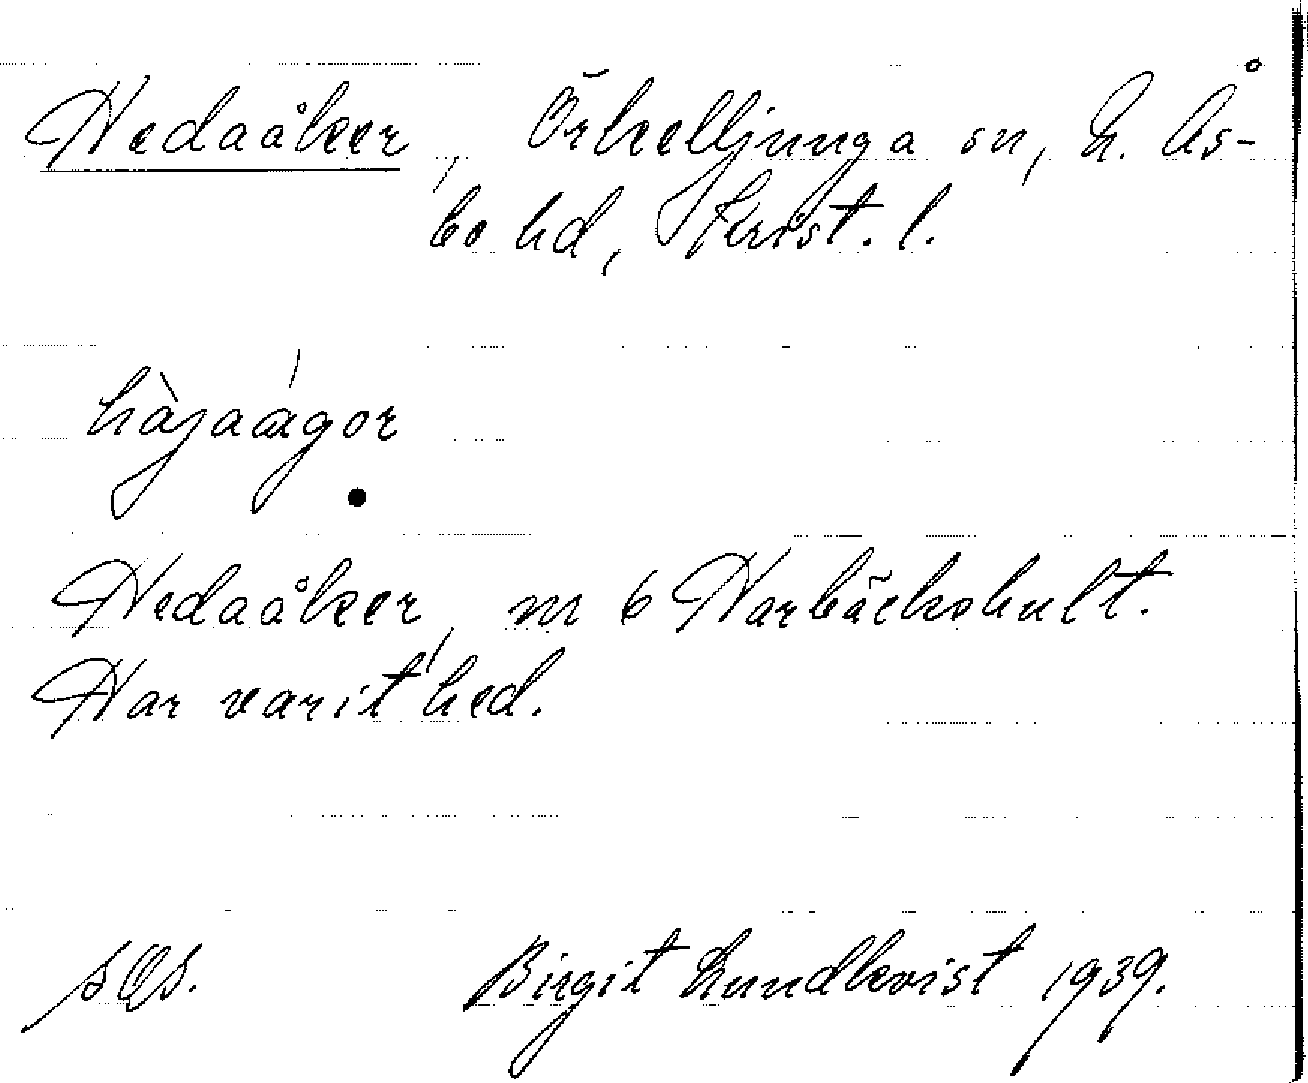 Hedaåker, Örkelljunga sn, N. Ås-
bo hd, Krist. l.
hàjaágor
Hedaåker, m 6 Harbäckshult.
Har varit hed.
Birgit Lundkvist 1939.